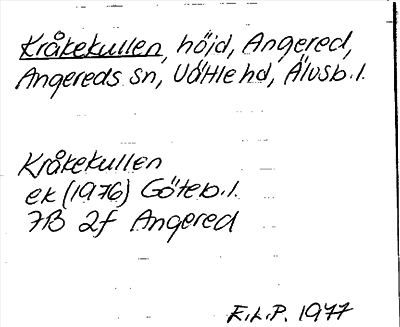 Kråkekullen, höjd, Angered,
Angereds sn, Vättle hd, Älvsb. l.
Kråkekullen
ek (1976) Göteb. l.
7B 2f Angered
E.L.P. 1977